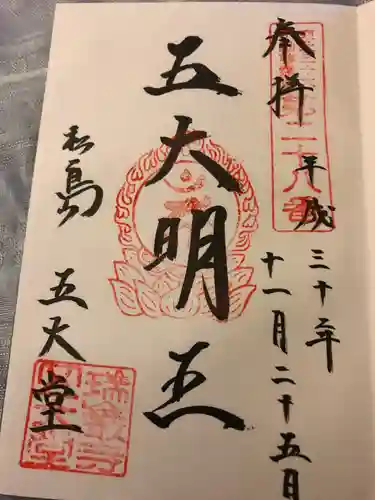 奉拝
平成三十年
十一月二十五日
五大明王
松島
五大堂
瑞巌寺